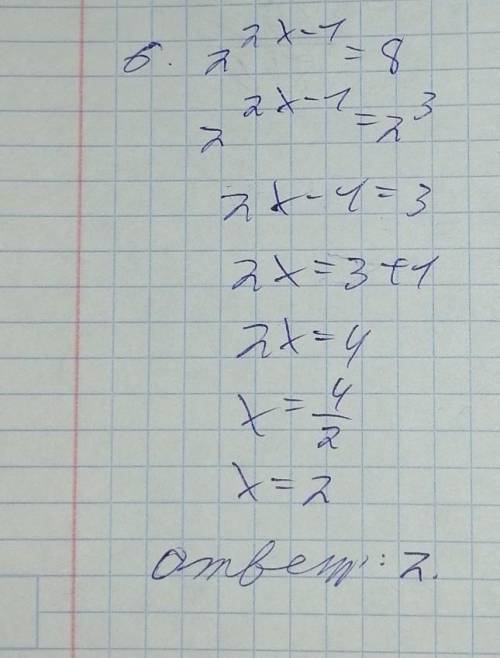 6. 2^{2x-1} = 8
2^{2x-1} = 2^3
2x-1=3
2x=3+1
2x=4
x=\frac{4}{2}
x=2
ответ: 2.